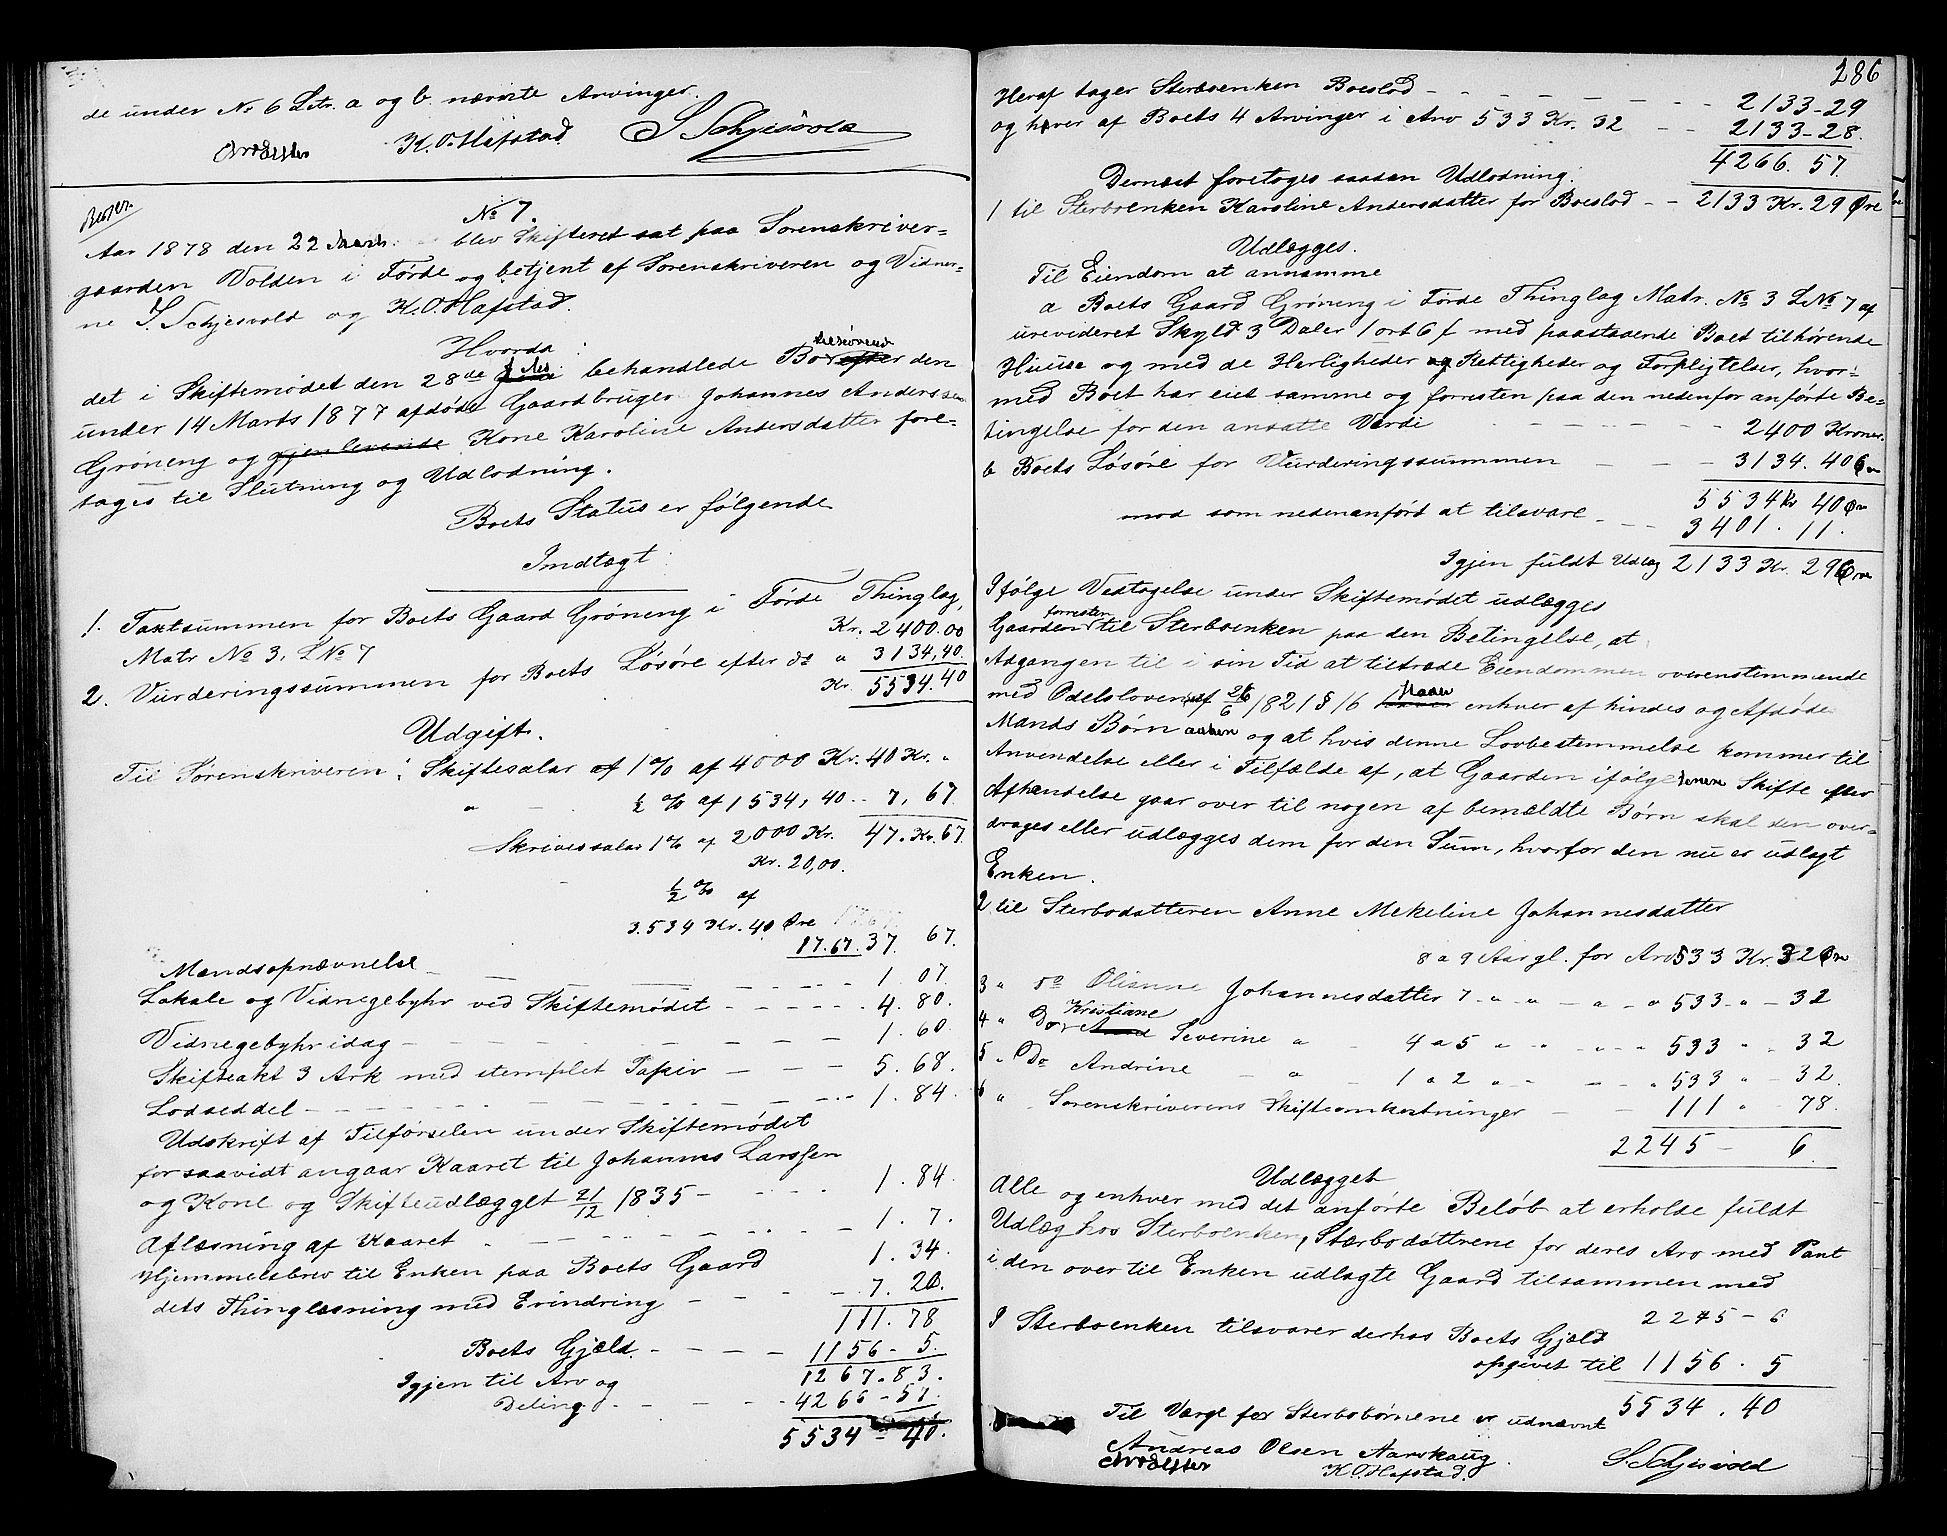 de under No 6 Litr. a og b. nævnte Arvinger.
K. O. Hafstad S Schjesvold
No 7.
Aar 1878 den 22 Marts blev Skifteret sat paa Sorenskriver-
gaarden Volden i Førde og betjent af Sorenskriveren og Vidner-
ne S. Schjesvold og K. O. Hafstad.
Hvorda:
det i Skiftemødet den 28de behandlede Bo tilhørende den
under 14 Marts 1877 afdøde Gaardbruger Johannes Anderssen
Grøneng og gjenlevende Kone Karoline Andersdatter fore-
tages til Slutning og Udlodning.
Boets Status er følgende
Indtægt:
1. Taxtsummen for Boets Gaard Grøneng i Førde Thinglag,
Matr No 3, L No 7 Kr. 2400.00
2. Vurderingssummen for Boets Løsøre efter do " 3134,40.
Kr. 5534.40
Udgift.
Til Sorenskriveren: Skiftesalar af 1% af 4000 Kr. 40 Kr. "
" - ½ % af 1534,40 .. 7, 67.
Skrivessalar 1% af 2000 Kr. 47. Kr. 67
Kr. 20,00.
½ % af
3.534 Kr. 40 Øre
17.67. 37. 67.
Mandsopnævnelse - - - 1. 07.
Lokale og Vidnegebyhr ved Skiftemødet - - - 4. 80.
Vidnegebyhr idag - - - 1. 60.
Skifteakt 3 Ark med stemplet Papir - - - 5. 68.
Lodseddel - - - 1. 84.
Udskrift af Tilførselen under Skiftemødet
forsaavidt angaar Kaaret til Johannes Larssen
og Kone og Skifteudlægget 21/12 1835 - - - 1. 84.
Aflæsning af Kaaret - - - 1. 7.
Hjemmelsbrev til Enken paa Boets Gaard 1. 34.
dets Thinglæsning med Erindring - - - 7. 20.
111. 78
Boets Gjæld. - - - 1156 - 5.
1267. 83.
Igjen til Arv og
Deling - - - 4266 - 57.
5534 - 40.
286
Heraf tager Sterboenken Boeslod - - - 2133-29
og hver af Boets 4 Arvinger i Arv 533 Kr. 32 - - 2133-28.
4266. 57.
Dernæst foretoges saadan Udlodning:
1 til Sterboenken Karoline Andersdatter for Boeslod - - 2133 Kr. 29 Øre
Udlægges.
Til Eiendom at annamme
a Boets Gaard Grøneng i Førde Thinglag Matr. No 3 L No 7 af
urevideret Skyld 3 Daler 1 ort 6 ſ med paastaaende Boet tilhørende
Huuse og med de Herligheder og Rettigheder og Forpligtelser, hvor-
med Boet har eiet samme og forresten paa den nedenfor anførte Be-
tingelse for den ansatte Værdi - - - 2400 Kroner.
b Boets Løsøre for Vurderingssummen - - - 3134. 40 Øre
5534 Kr 40 Øre
mod som nedenanførd at tilsvare - - - 3401. 11.
Igjen fuldt Udlæg 2133 Kr. 29 Øre
Ifølge Vedtagelse under Skiftemødet udlægges
Gaarden forresten til Sterboenken paa den Betingelse, at
Adgangen til i sin Tid at tiltræde Eiendommen overensstemmende
med Odelsloven af 26/6 1821 § 16 staaer enhver af hindes og Afdøde
Mands Børn aaben og at hvis denne Lovbestemmelse kommer til
Anvendelse eller i Tilfælde af, at Gaarden ifølge senere Skifte eller
Afhændelse gaar over til nogen af bemældte Børn skal den over-
drages eller udlægges dem for den Sum, hvorfor den nu er udlagt
Enken.
2 til Sterbodatteren Anne Mekeline Johannesdatter
8 a 9 Aar gl. for Arv 533 Kr. 32 Øre
3 " do Olianne Johannesdatter 7 " " - " - " 533 " - 32
4 " Do Kristiane Severine " - 4 a 5 " " " - " 533 " " 32
5 " Do Andrine - " - 1 a 2 " " - " - " 533 " - 32.
6 " Sorenskriverens Skifteomkostninger - - 111 " - 78.
2245 - 6.
Udlægget
Alle og enhver med det anførte Beløb at erholde fuldt
Udlæg hos Sterboenken, Stærbodøttrene for deres Arv med Pant
i den over til Enken udlagte Gaard tilsammen med
2245 - 6
I Sterboenken tilsvarer derhos Boets Gjæld
opgivet til 1156. 5
5534. 40
Til Værge for Sterbobørnene er udnævnt
Andreas Olsen Aarskaug.
K. O. Hafstad. S. Schjesvold